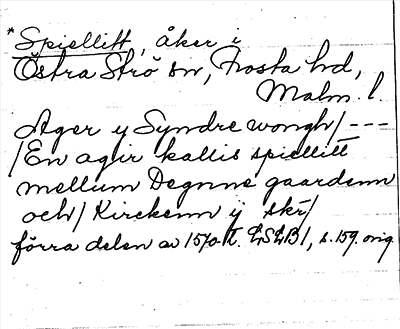 *Spiellitt, åker i
Östra Strö sn, Frosta hd,
Malm. l.
Ager y Syndre wongh/ ---
/En agir kallis spiellitt
mellum Degnne gaardenn
och/ Kirckenn ij skr/
förra delen av 1570-t. LSLB1, s. 159. orig.